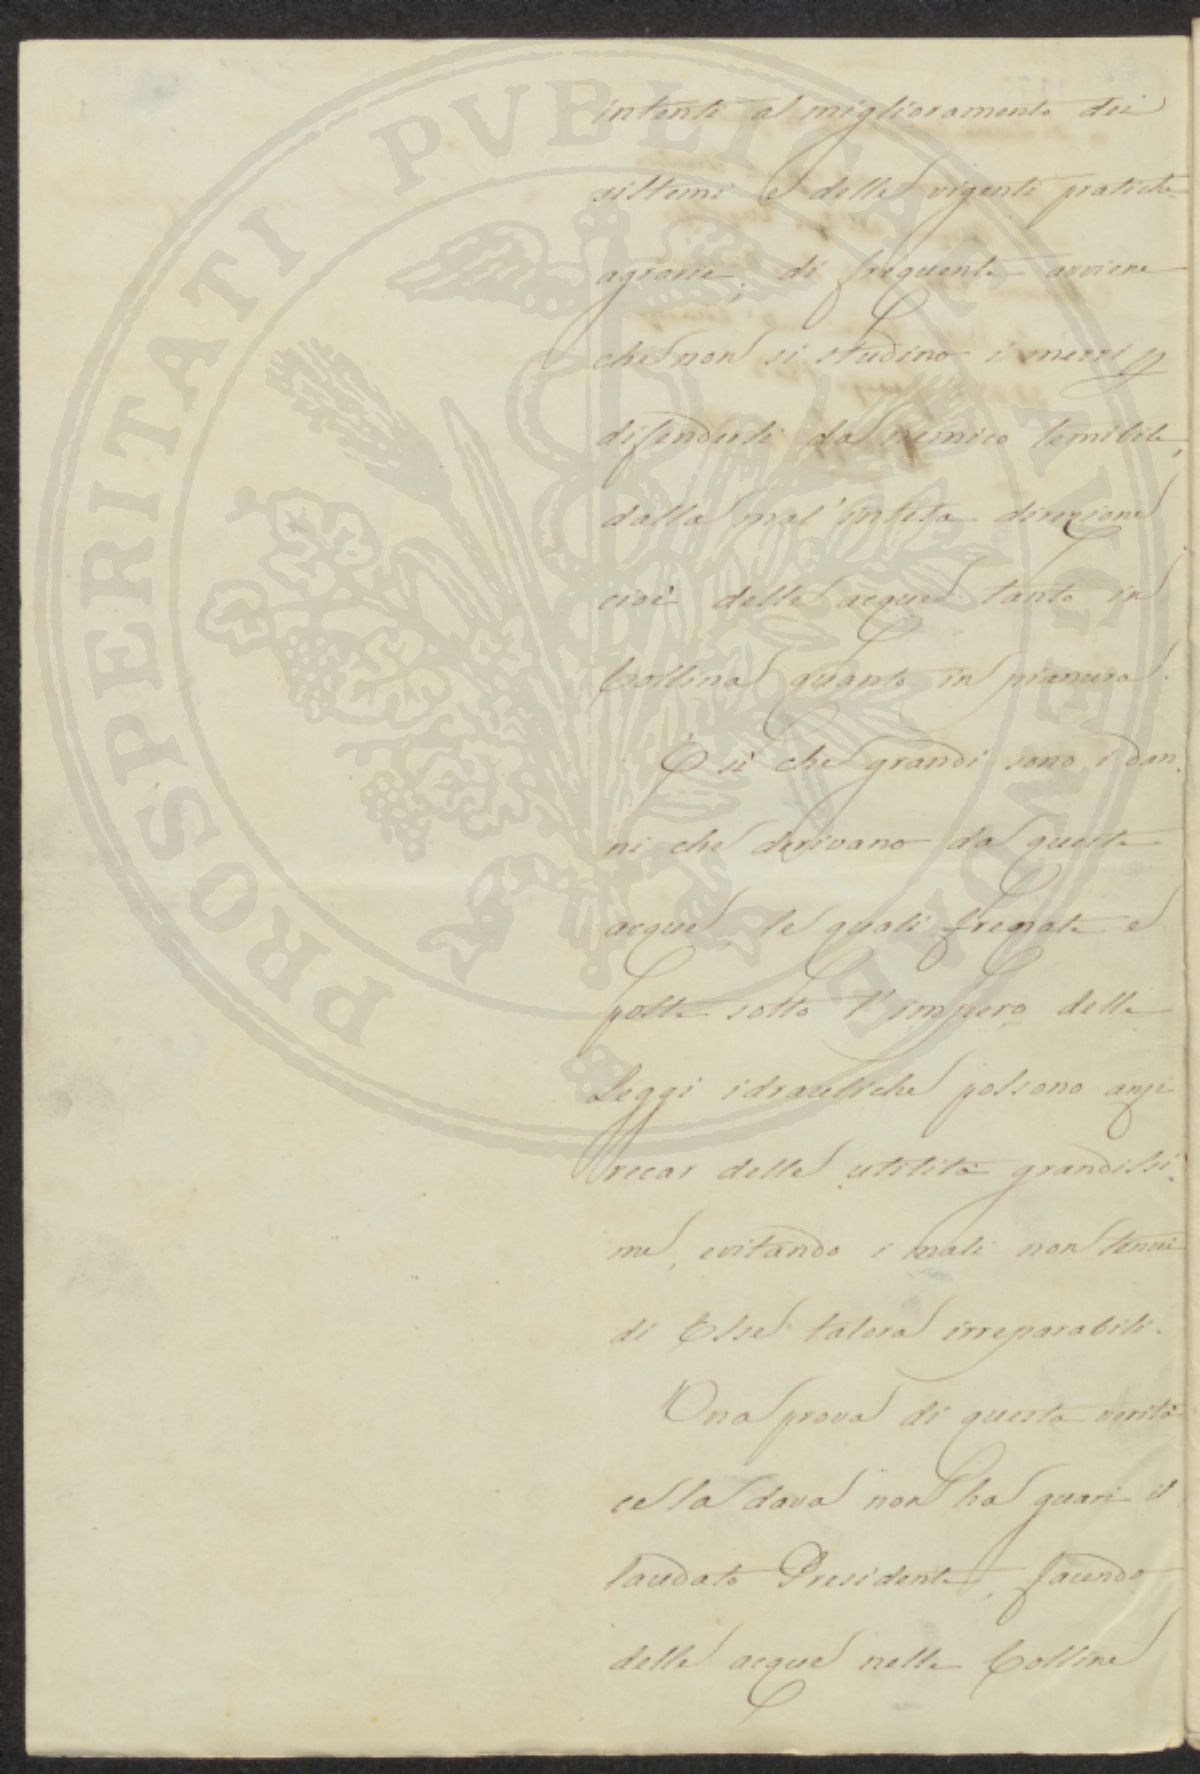 PROSPERITATI PVBLICAE AVGENDAE
intenti al miglioramento dei
sistemi e delle vigenti pratiche
agrarie; di frequente avviene
che non si studino i mezzi p
difenderli da nemico temibile,
dalla mal'intesa direzione
cioè delle acque tanto in
Collina quanto in pianura.
E sì che grandi sono i dan-
ni che derivano da queste
acque, le quali frenate e
poste sotto l'impero delle
Leggi idrauliche possono anzi
recar delle utilità grandissi-
me, evitando i mali non tenui
di Esse talora irreparabili.
Una prova di questa verità
ce la dava non ha guari il
laudato Presidente, facendo
delle acque nelle Colline